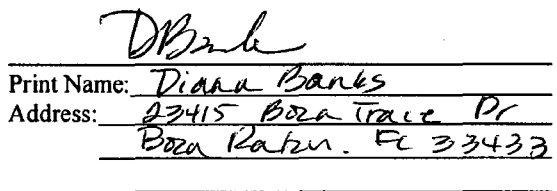 DBank
Print Name: Diana Banks
Address: 23415 Boca Trace Dr
Boca Raton. FL 33433